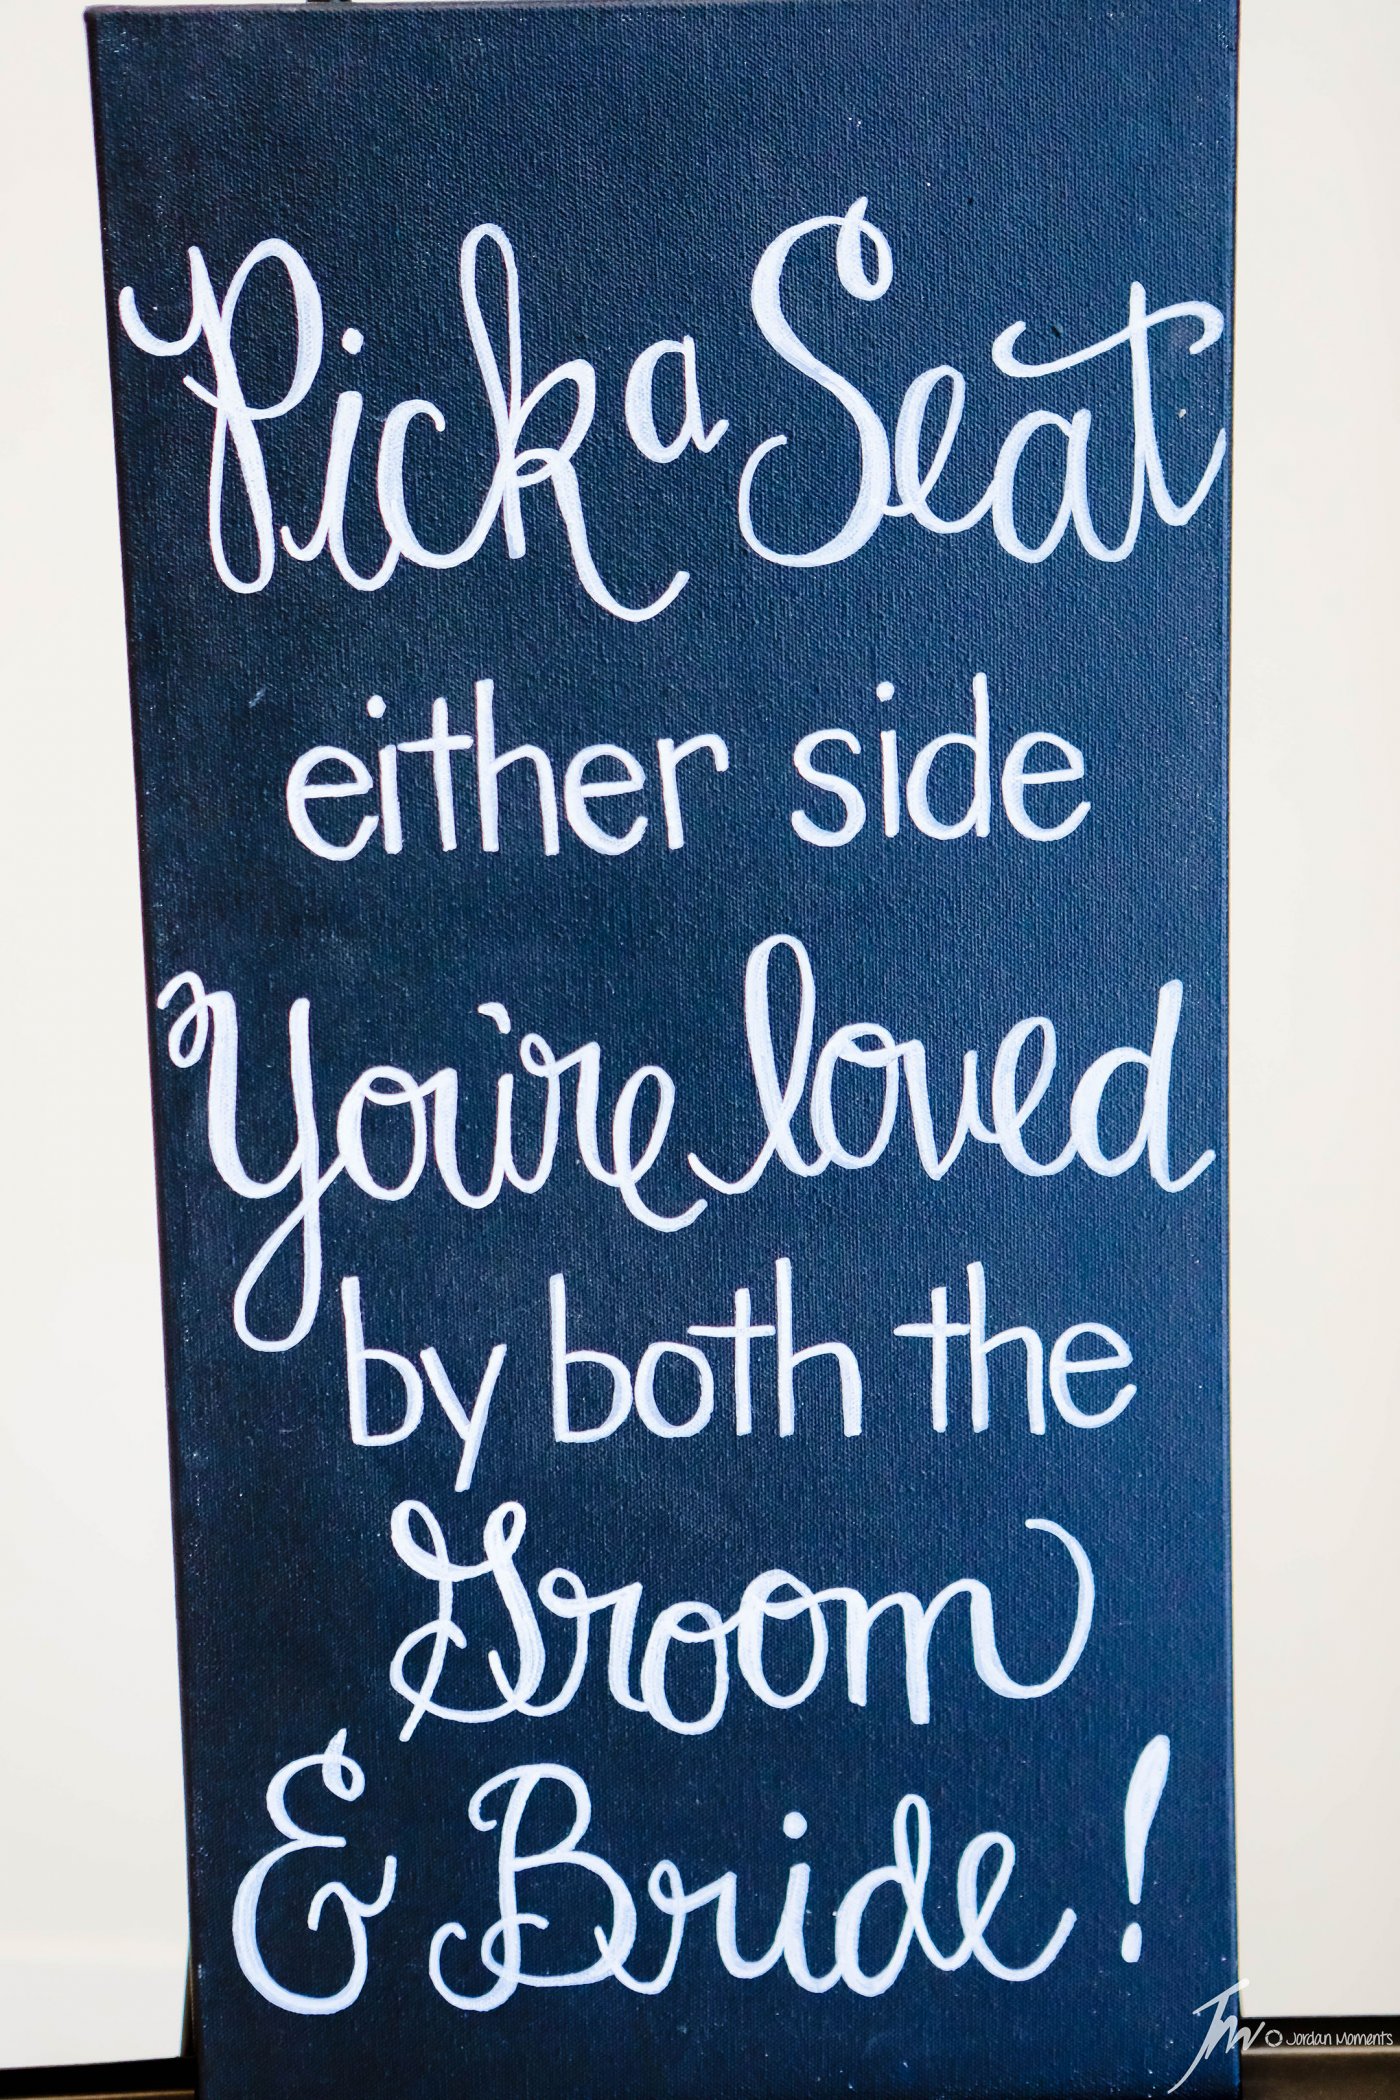 Pick a Seat
either side
You're loved
by both the
Groom
& Bride!
Jm Jordan Moments